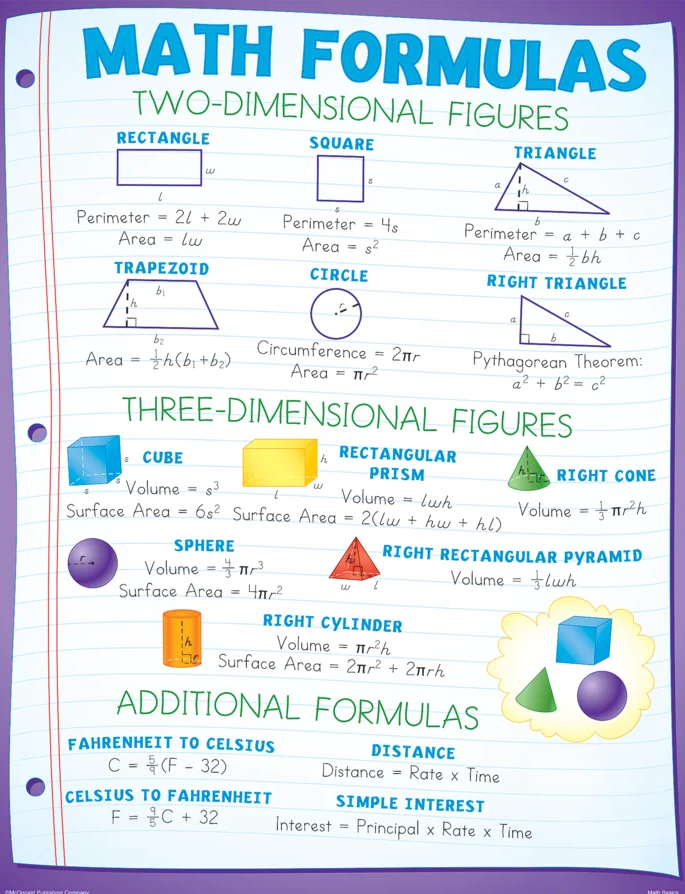 MATH FORMULAS
TWO-DIMENSIONAL FIGURES
RECTANGLE
w
l
Perimeter = 2l + 2w
Area = lw
SQUARE
s
s
Perimeter = 4s
Area = s²
TRIANGLE
a
h
c
b
Perimeter = a + b + c
Area = ½bh
TRAPEZOID
b₁
h
b₂
Area = ½h(b₁+b₂)
CIRCLE
r
Circumference = 2πr
Area = πr²
RIGHT TRIANGLE
a
c
b
Pythagorean Theorem:
a² + b² = c²
THREE-DIMENSIONAL FIGURES
CUBE
s
s
s
Volume = s³
Surface Area = 6s²
RECTANGULAR
PRISM
h
w
l
Volume = lwh
Surface Area = 2(lw + hw + hl)
RIGHT CONE
h
r
Volume = ⅓πr²h
SPHERE
r
Volume = 4/3 πr³
Surface Area = 4πr²
RIGHT RECTANGULAR PYRAMID
h
w
l
Volume = ⅓lwh
RIGHT CYLINDER
h
r
Volume = πr²h
Surface Area = 2πr² + 2πrh
ADDITIONAL FORMULAS
FAHRENHEIT TO CELSIUS
C = 5/9(F - 32)
DISTANCE
Distance = Rate x Time
CELSIUS TO FAHRENHEIT
F = 9/5C + 32
SIMPLE INTEREST
Interest = Principal x Rate x Time
©McDonald Publishing Company
Math Basics